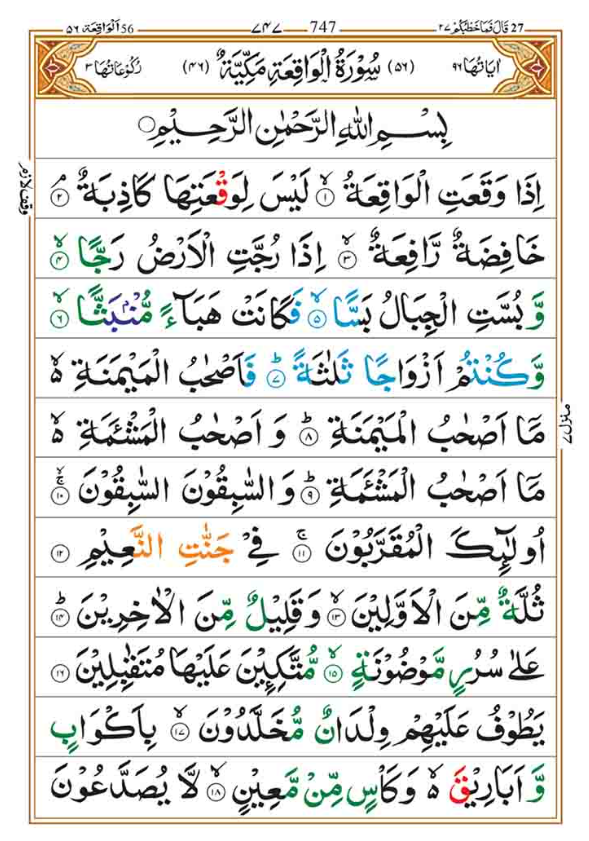 27 قَالَ فَمَا خَطْبُكُمْ ٢٧ 747 ٧٤٧ 56 اَلْوَاقِعَة ٥٦
اٰيَاتُهَا ٩٦ (٥٦) سُوْرَةُ الْوَاقِعَةِ مَكِّيَّةٌ (٤٦) رُكُوْعَاتُهَا ٣
بِسْمِ اللّٰهِ الرَّحْمٰنِ الرَّحِيْمِ
وقف لازم
اِذَا وَقَعَتِ الْوَاقِعَةُ ۙ‏ ١ لَيْسَ لِوَقْعَتِهَا كَاذِبَةٌ ۘ‏ ٢
خَافِضَةٌ رَّافِعَةٌ ۙ‏ ٣ اِذَا رُجَّتِ الْاَرْضُ رَجًّا ۙ‏ ٤
وَّبُسَّتِ الْجِبَالُ بَسًّا ۙ‏ ٥ فَكَانَتْ هَبَآءً مُّنْۢبَثًّا ۙ‏ ٦
وَّكُنْتُمْ اَزْوَاجًا ثَلٰثَةً ؕ‏ ٧ فَاَصْحٰبُ الْمَيْمَنَةِ ە
مَاۤ اَصْحٰبُ الْمَيْمَنَةِ ؕ‏ ٨ وَاَصْحٰبُ الْمَشْئَمَةِ ە
منزل ٧
مَاۤ اَصْحٰبُ الْمَشْئَمَةِ ؕ‏ ٩ وَالسّٰبِقُوْنَ السّٰبِقُوْنَ ۚۙ‏ ١٠
اُولٰٓئِكَ الْمُقَرَّبُوْنَ ۚ‏ ١١ فِيْ جَنّٰتِ النَّعِيْمِ ١٢
ثُلَّةٌ مِّنَ الْاَوَّلِيْنَ ۙ‏ ١٣ وَقَلِيْلٌ مِّنَ الْاٰخِرِيْنَ ؕ‏ ١٤
عَلٰى سُرُرٍ مَّوْضُوْنَةٍ ۙ‏ ١٥ مُّتَّكِـِٕيْنَ عَلَيْهَا مُتَقٰبِلِيْنَ ١٦
يَطُوْفُ عَلَيْهِمْ وِلْدَانٌ مُّخَلَّدُوْنَ ۙ‏ ١٧ بِاَكْوَابٍ
وَّاَبَارِيْقَ ە وَكَاْسٍ مِّنْ مَّعِيْنٍ ۙ‏ ١٨ لَّا يُصَدَّعُوْنَ